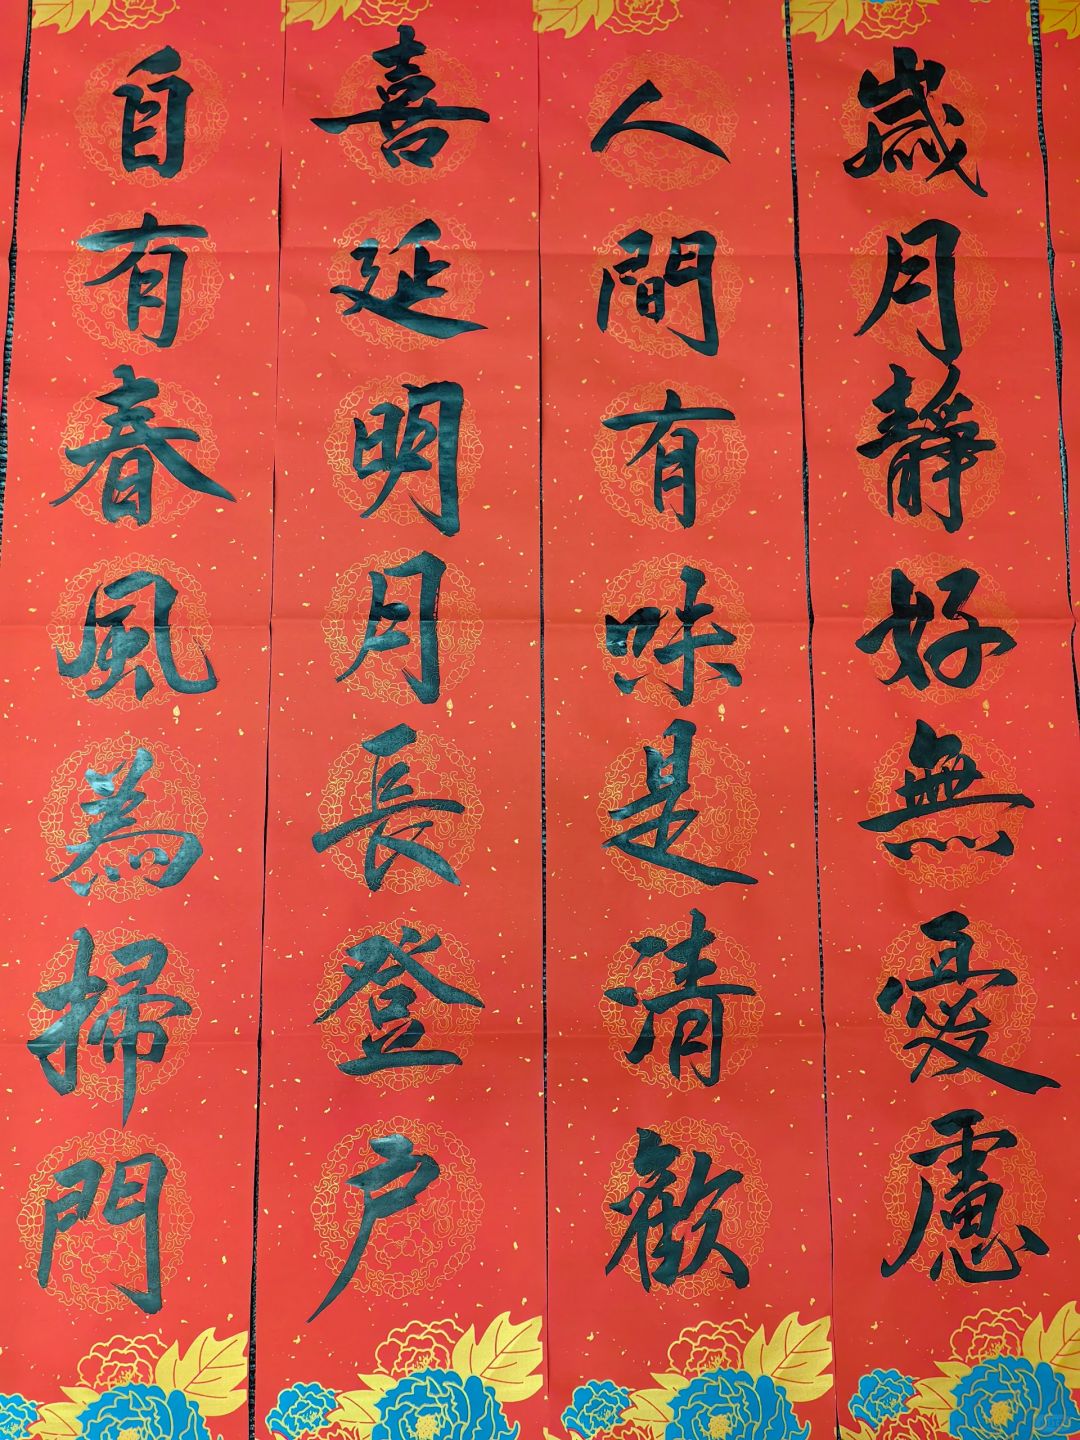 歲月靜好無憂慮
人間有味是清歡
喜延明月長登户
自有春風為掃門